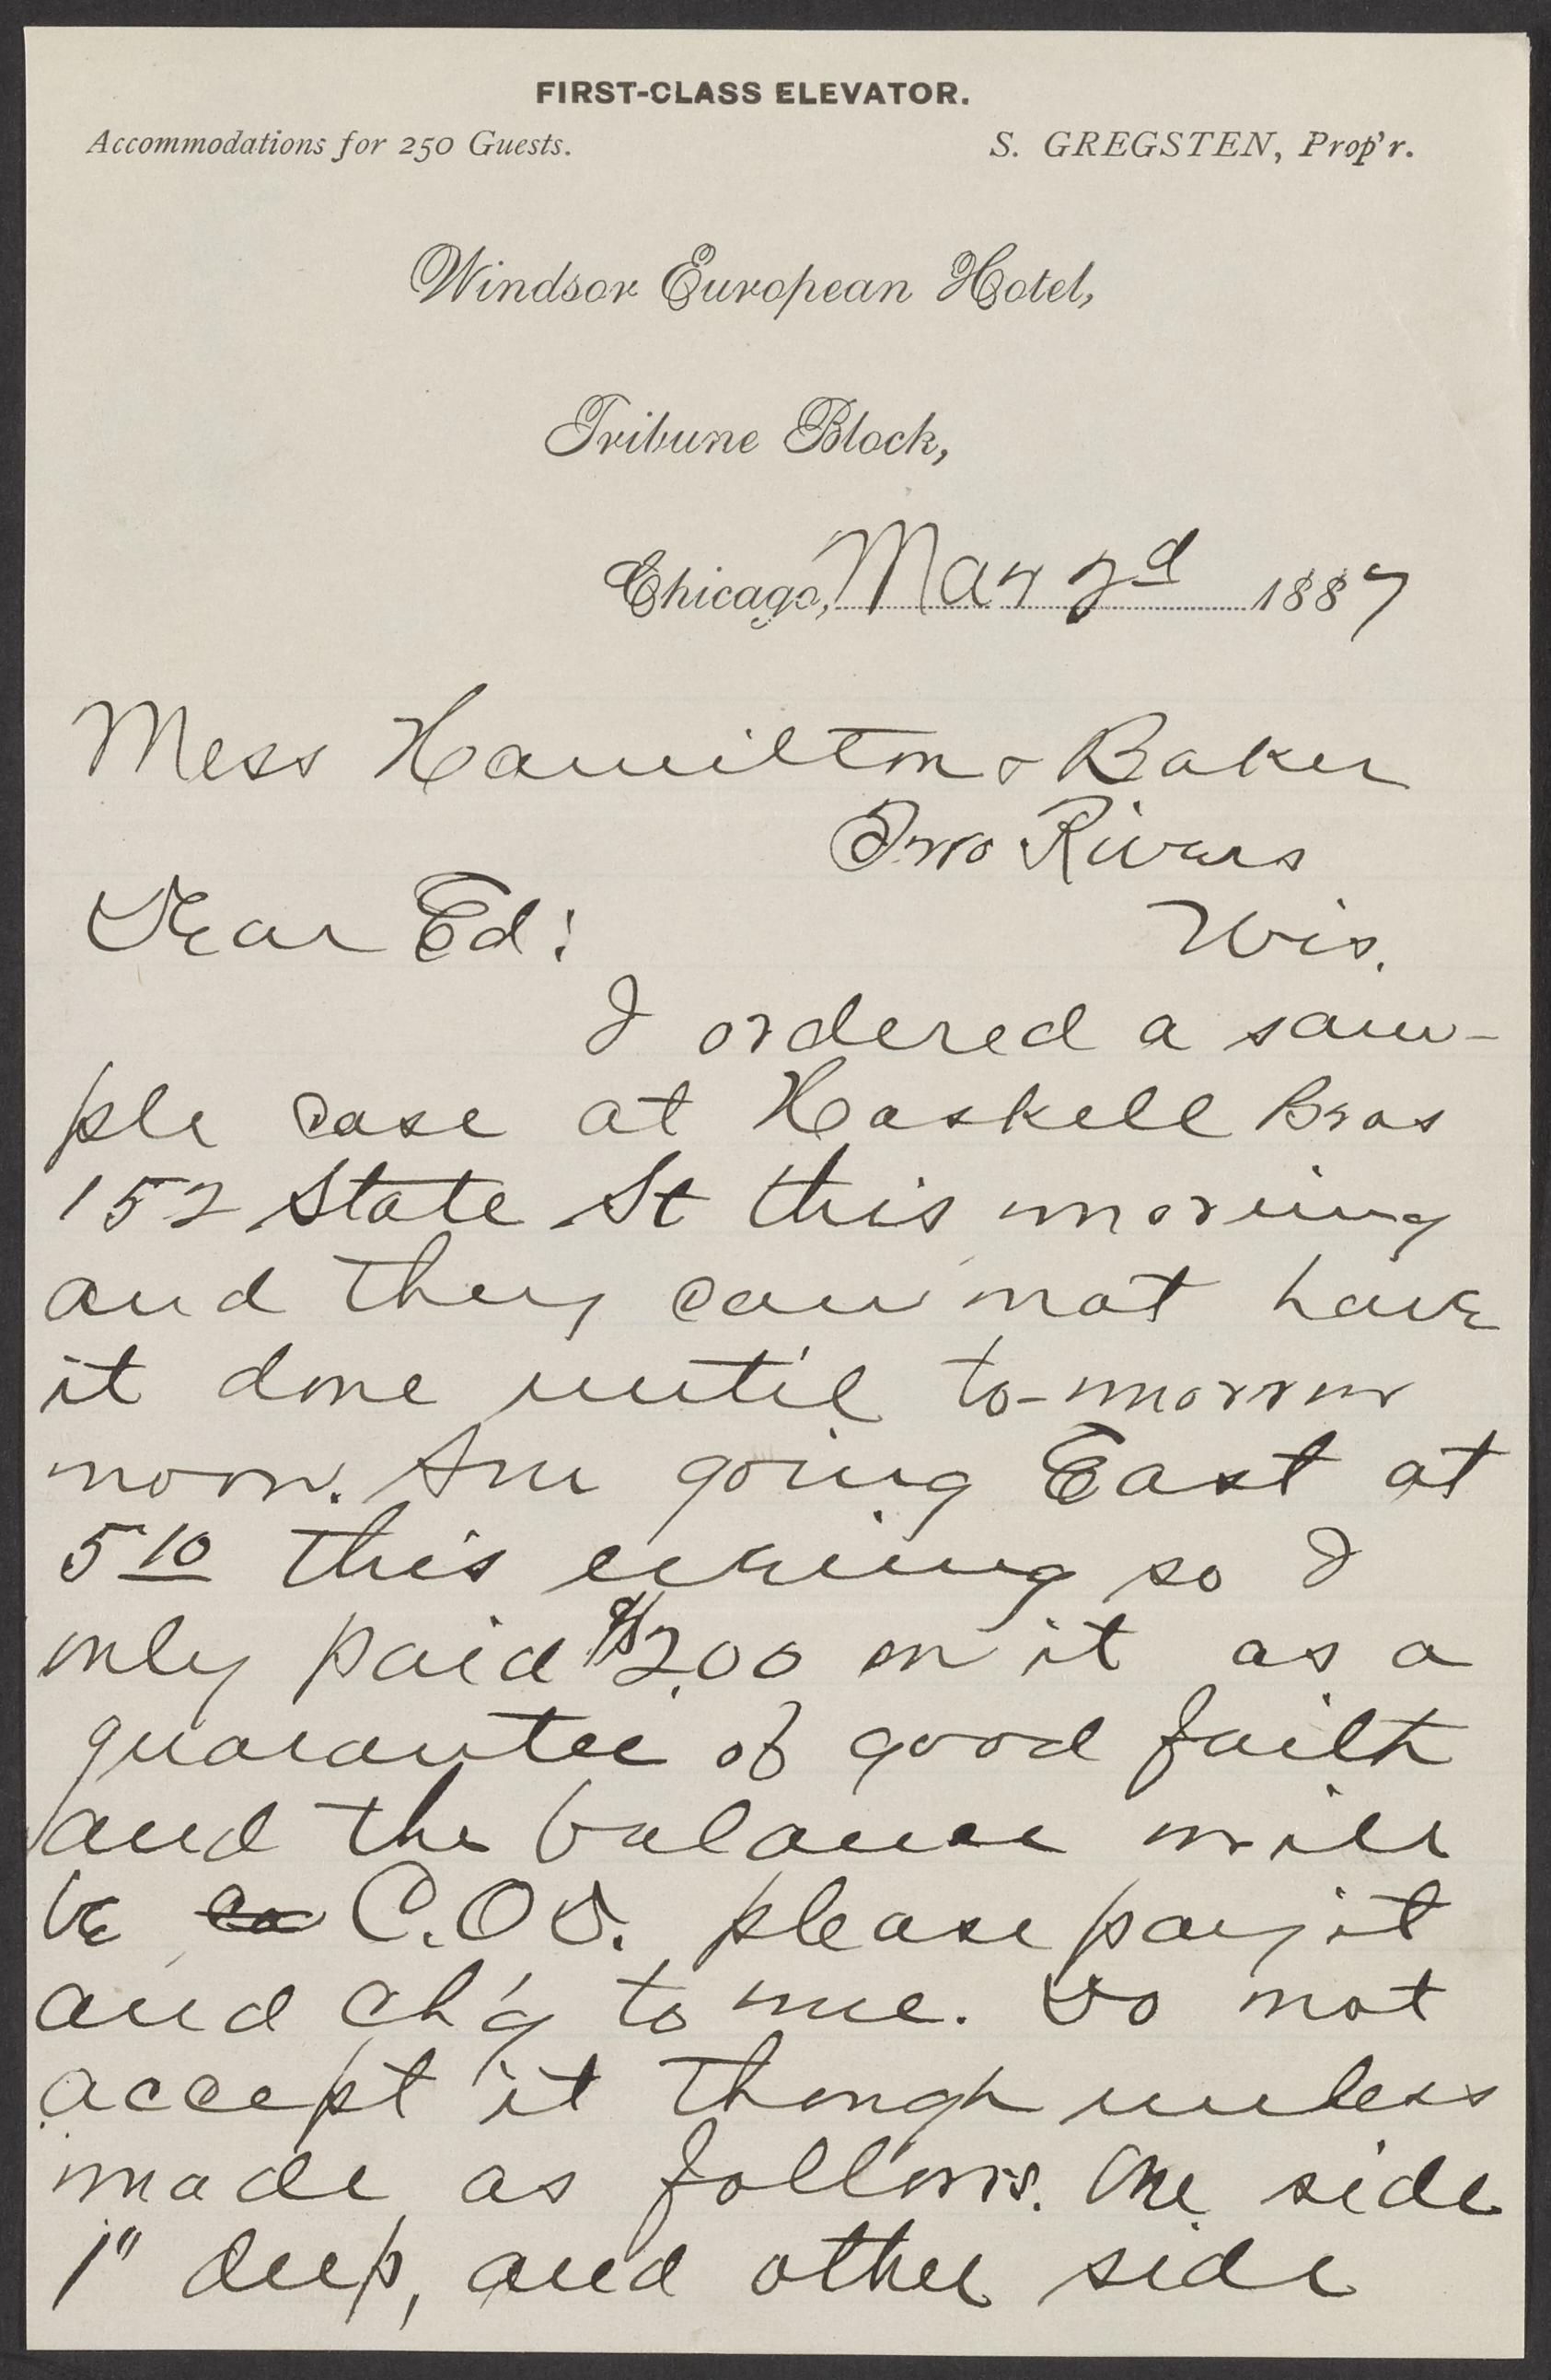 FIRST-CLASS ELEVATOR.
Accommodations for 250 Guests. S. GREGSTEN, Prop'r.
Windsor European Hotel,
Tribune Block,
Chicago, May 2d 1887
Mess Hamilton & Baker
Two Rivers
Dear Ed: Wis.
I ordered a sam-
ple case at Haskell Bros
152 State St this morning
and they can not have
it done until to-morrow
noon. Am going East at
5 10 this evening so I
only paid $2.00 on it as a
guarantee of good faith
and the balance will
be C.O.D. please pay it
and ch'g to me. Do not
accept it though unless
made as follows. One side
1" deep, and other side